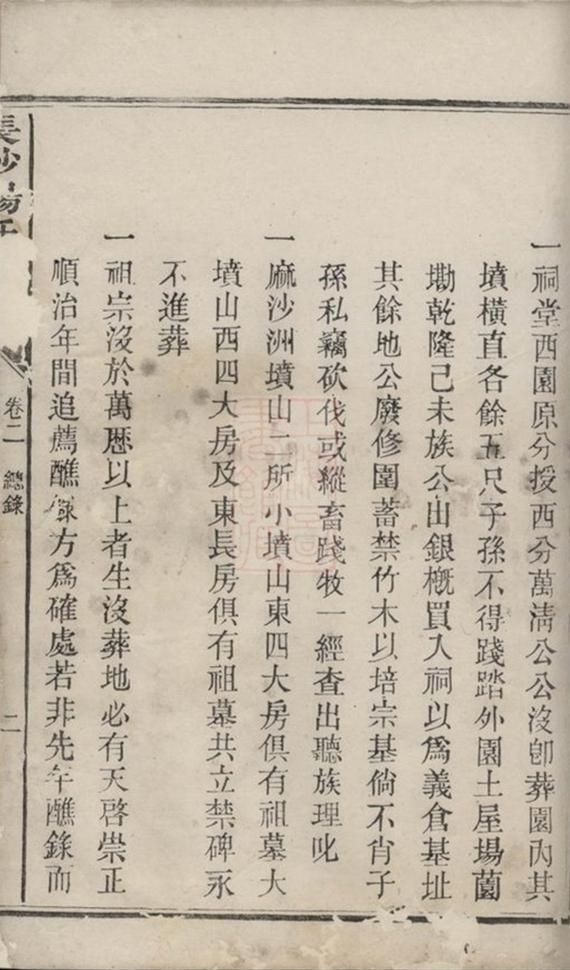 一祠堂西園原分授西分萬淸公公沒卽葬園內其
墳橫直各餘五尺子孫不得踐踏外園土屋塲薗
墈乾隆己未族公出銀槪買入祠以爲義倉基址
其餘地公廢修圍蓄禁竹木以培宗基倘不肖子
孫私竊砍伐或縱畜踐牧一經查出聽族理叱
一麻沙洲墳山二所小墳山東四大房俱有祖墓大
墳山西四大房及東長房俱有祖墓共立禁碑永
不進葬
一祖宗沒於萬歷以上者生沒葬地必有天啓崇正
順治年間追薦醮錄方爲確處若非先年醮錄而
長沙
卷二 總錄 二